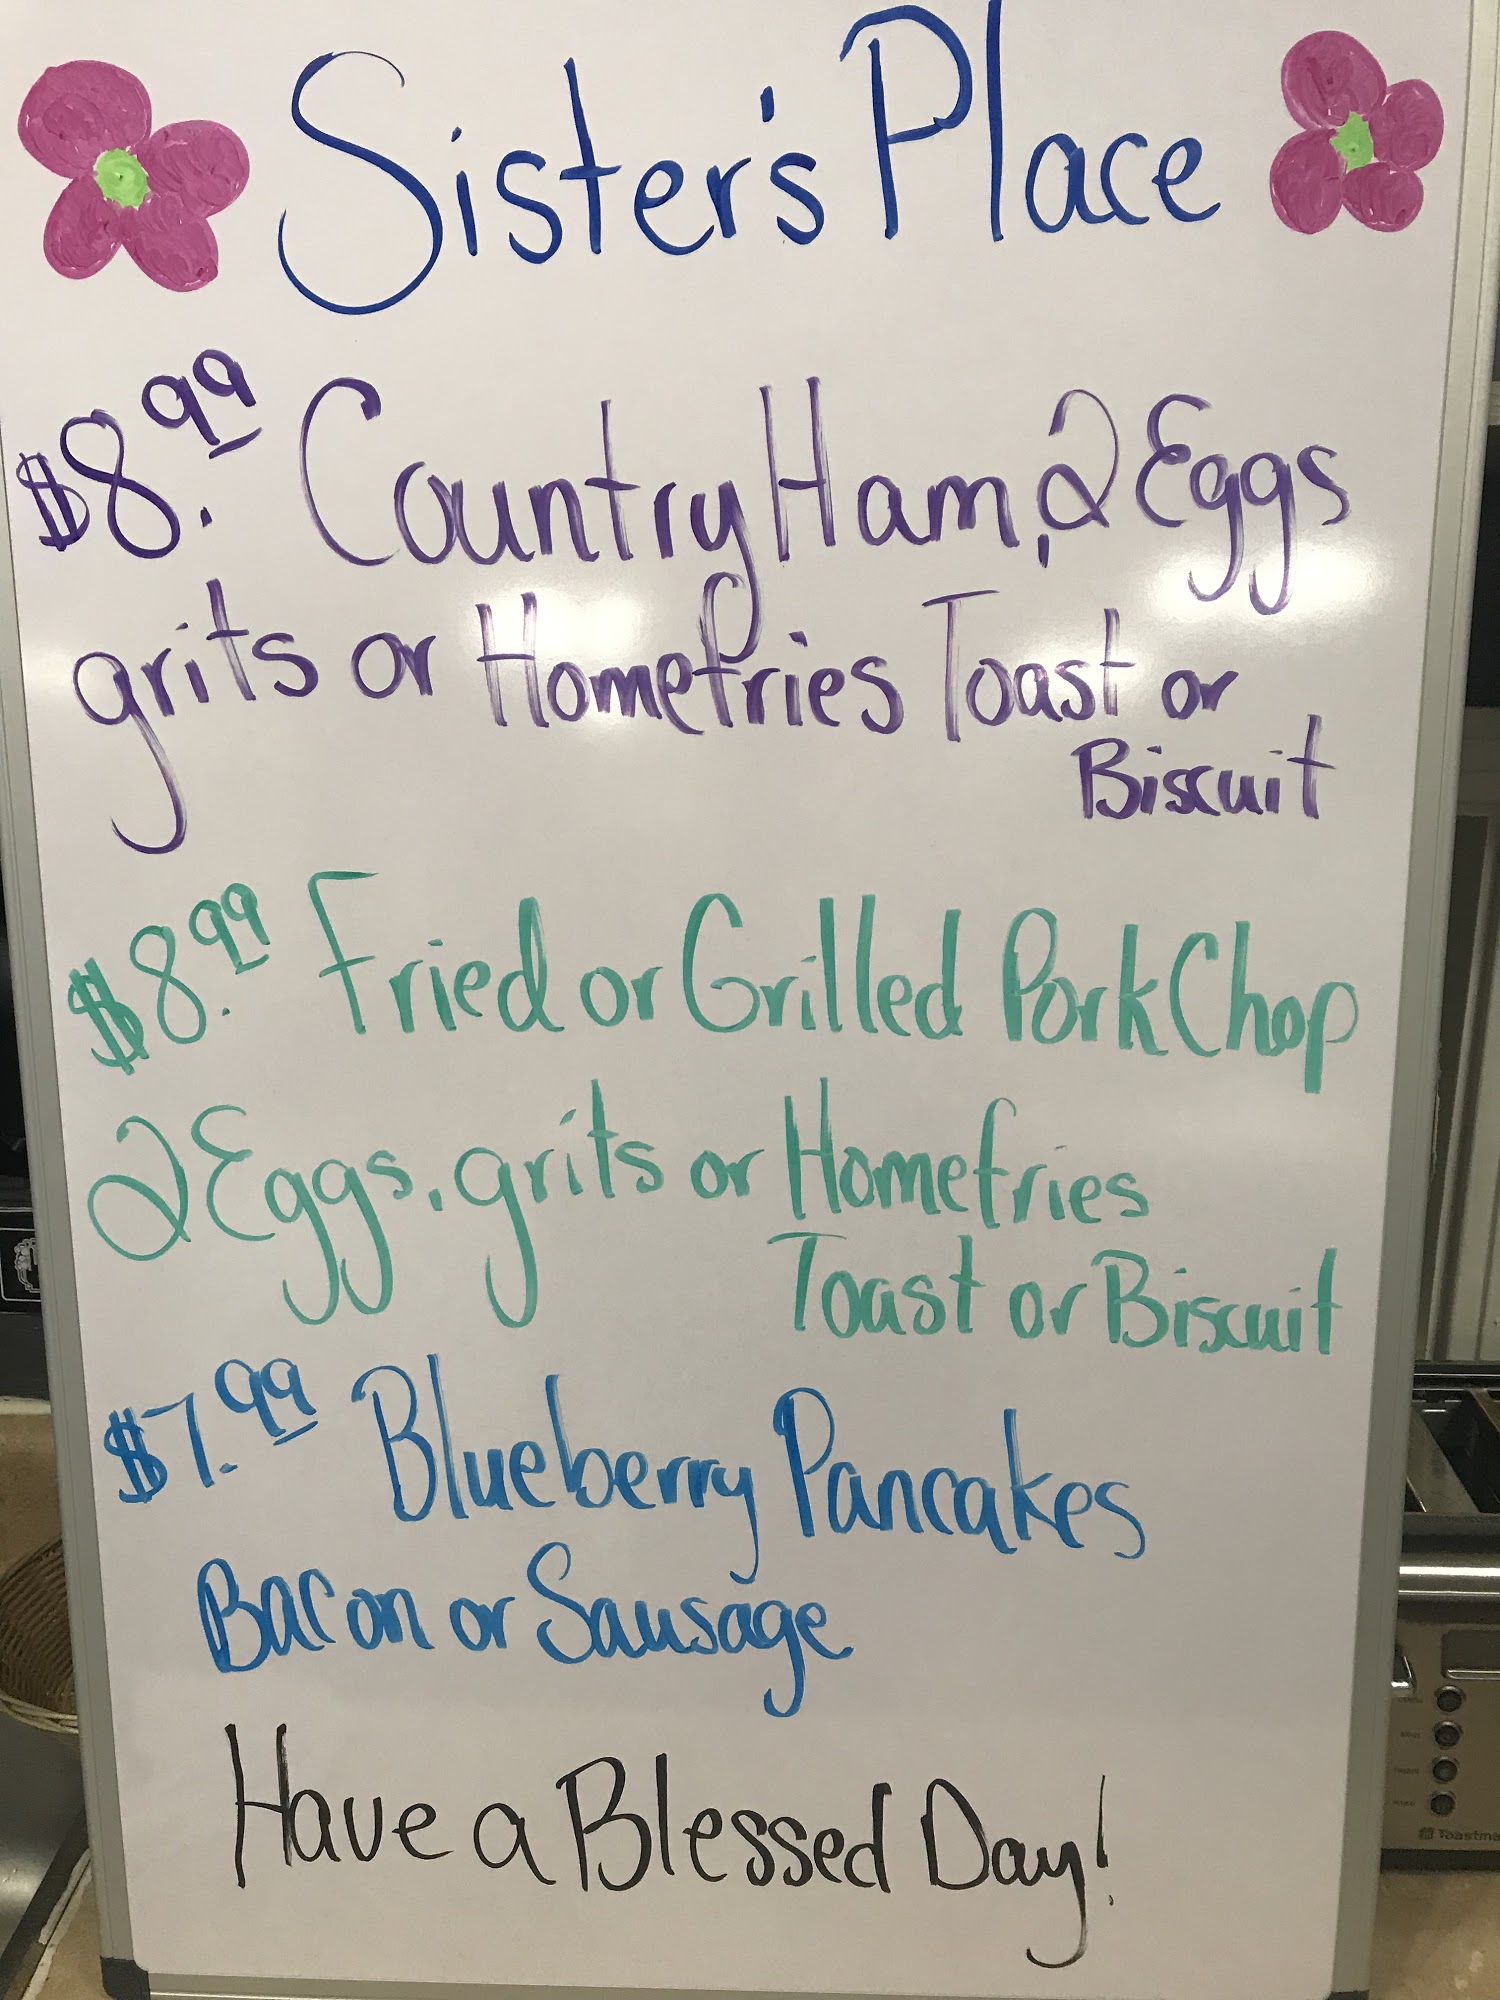 Sister's Place
$8.99 Country Ham, 2 Eggs
grits or Homefries Toast or
Biscuit
$8.99 Fried or Grilled Pork Chop
2 Eggs. grits or Homefries
Toast or Biscuit
$7.99 Blueberry Pancakes
Bacon or Sausage
Have a Blessed Day!